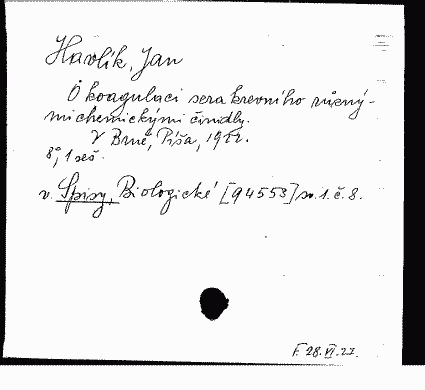 Havlík, Jan
O koagulaci sera krevního různý-
mi chemickými činidly.
V Brně, Píša, 1922.
8°, 1 seš.
v. Spisy, Biologické [94553] sv. 1. č. 8.
F. 28. VI. 27.